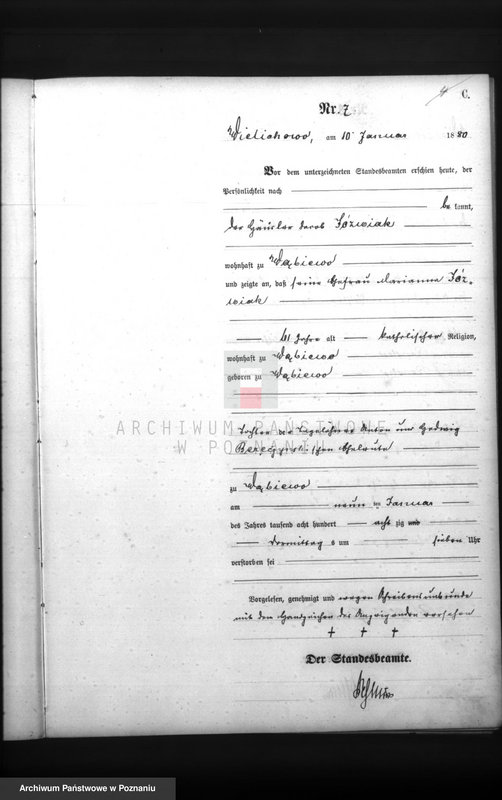 C.
Nr. 7
Wielichowo, am 10 Januar 1880
Vor dem unterzeichneten Standesbeamten erschien heute, der
Persönlichkeit nach
be kannt,
der Häusler Jacob Jóźwiak
wohnhaft zu Dąbiewo
und zeigte an, daß seine Ehefrau Marianna Jóź-
wiak
61 Jahre alt katholischer Religion,
wohnhaft zu Dąbiewo
geboren zu Dąbiewo
ARCHIWUM PAŃSTWOWE
W POZNANIU
Tochter der Tagelöhner Anton und Hedwig
Eheleute
zu Dąbiewo
am neun ten Januar
des Jahres tausend acht hundert acht zig und
Vormittag s um sieben Uhr
verstorben sei
Vorgelesen, genehmigt und wegen Schreibensunkunde
mit dem Handzeichen des Anzeigenden versehen
† † †
Der Standesbeamte.
Archiwum Państwowe w Poznaniu